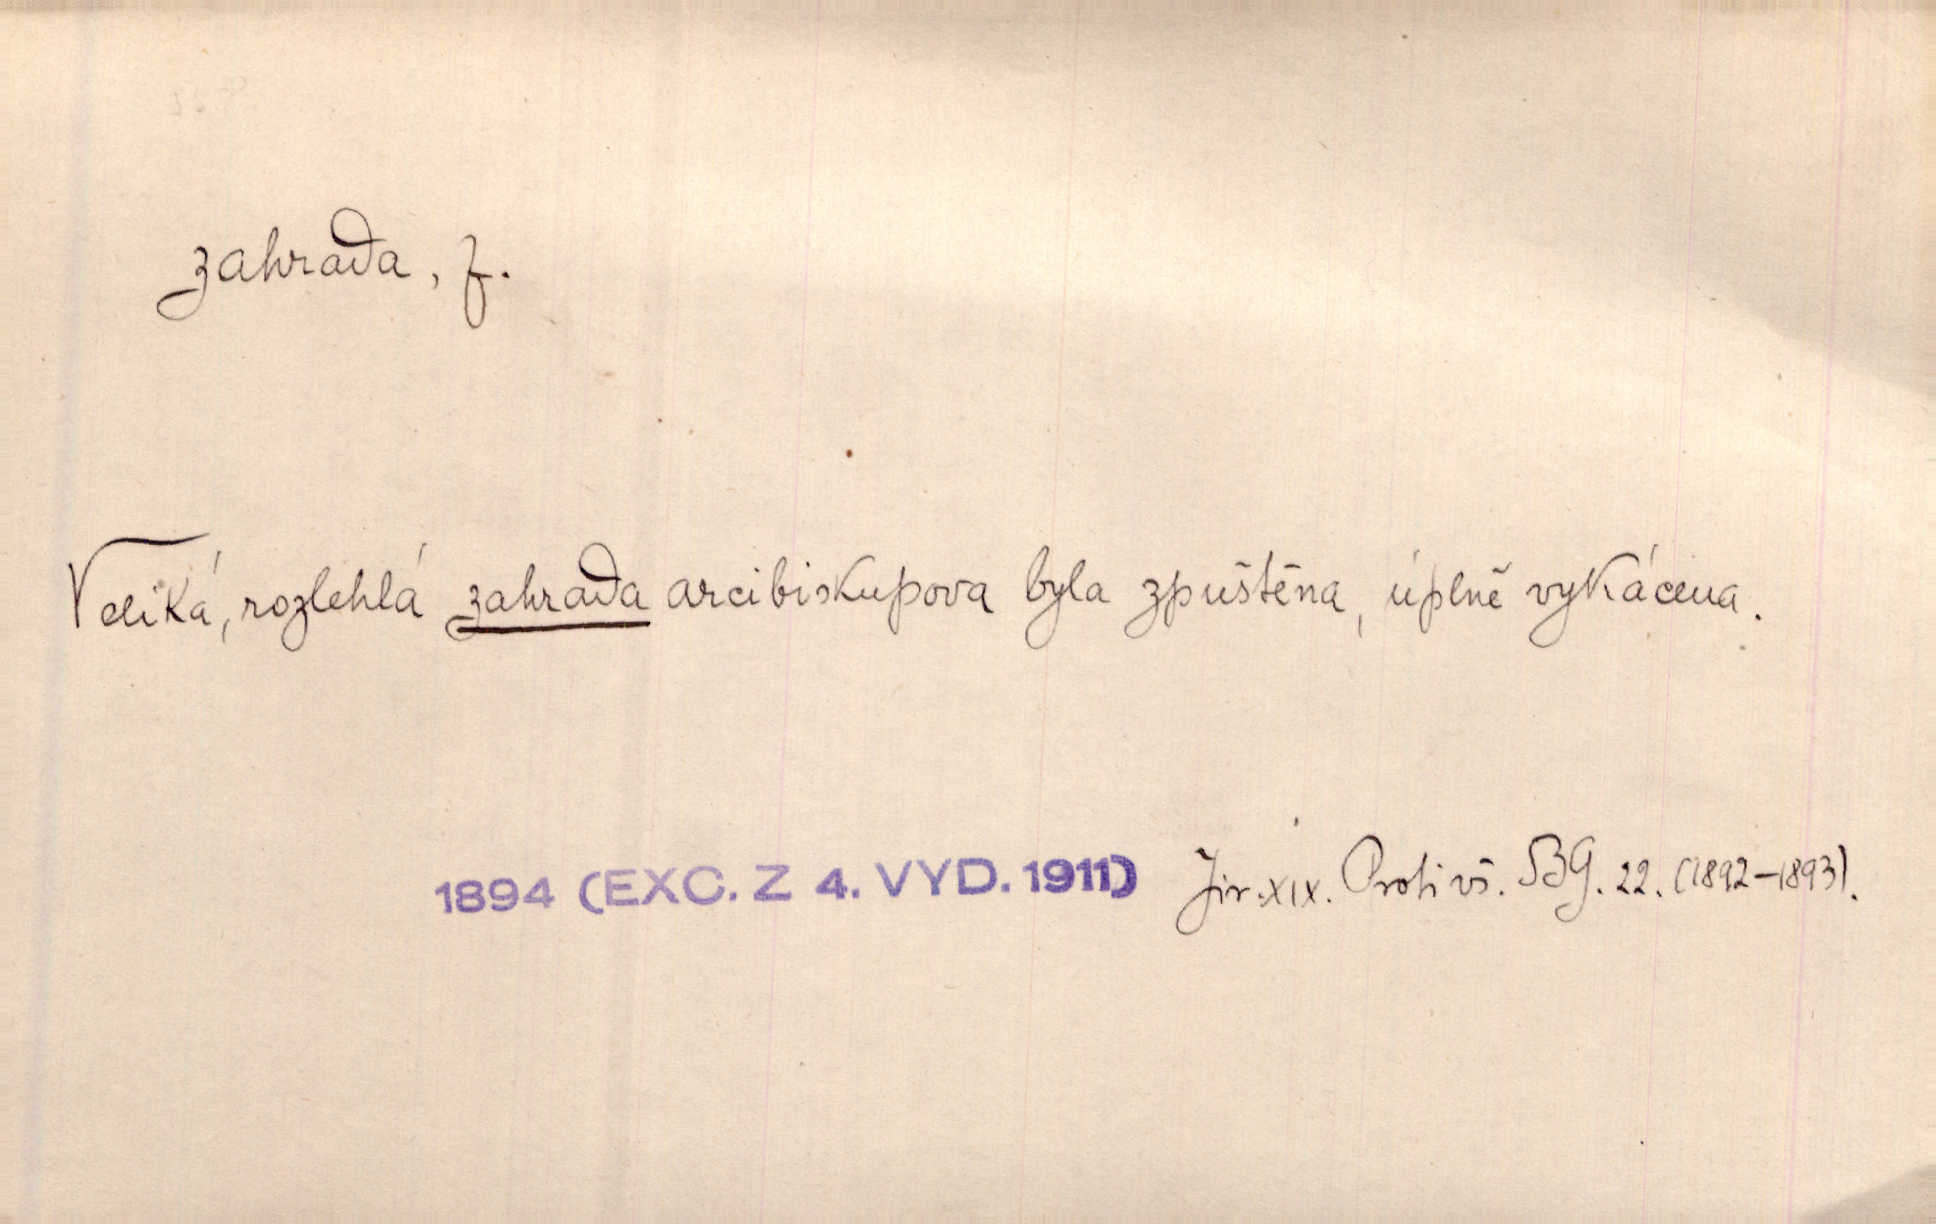 zahrada, f.
Veliká, rozlehlá zahrada arcibiskupova byla zpuštěna, úplně vykácena.
1894 (EXC. Z 4. VYD. 1911) Jir. XIX. Proti vš. BG. 22. (1892–1893).